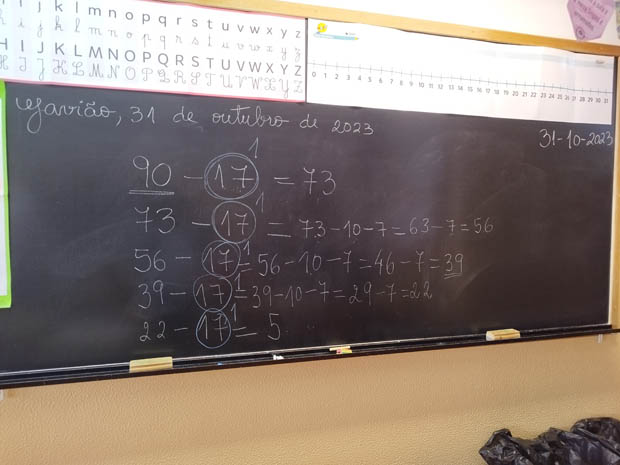 j k l m n o p q r s t u v w x y z
H I J K L M N O P Q R S T U V W X Y Z
0 1 2 3 4 5 6 7 8 9 10 11 12 13 14 15 16 17 18 19 20 21 22 23 24 25 26 27 28 29 30 31
Gavião, 31 de outubro de 2023
31-10-2023
90 - 17 = 73 1
73 - 17 = 73-10-7=63-7=56 1
56 - 17 = 56-10-7=46-7=39 1
39-17=39-10-7=29-7=22 1
22-17=5 1